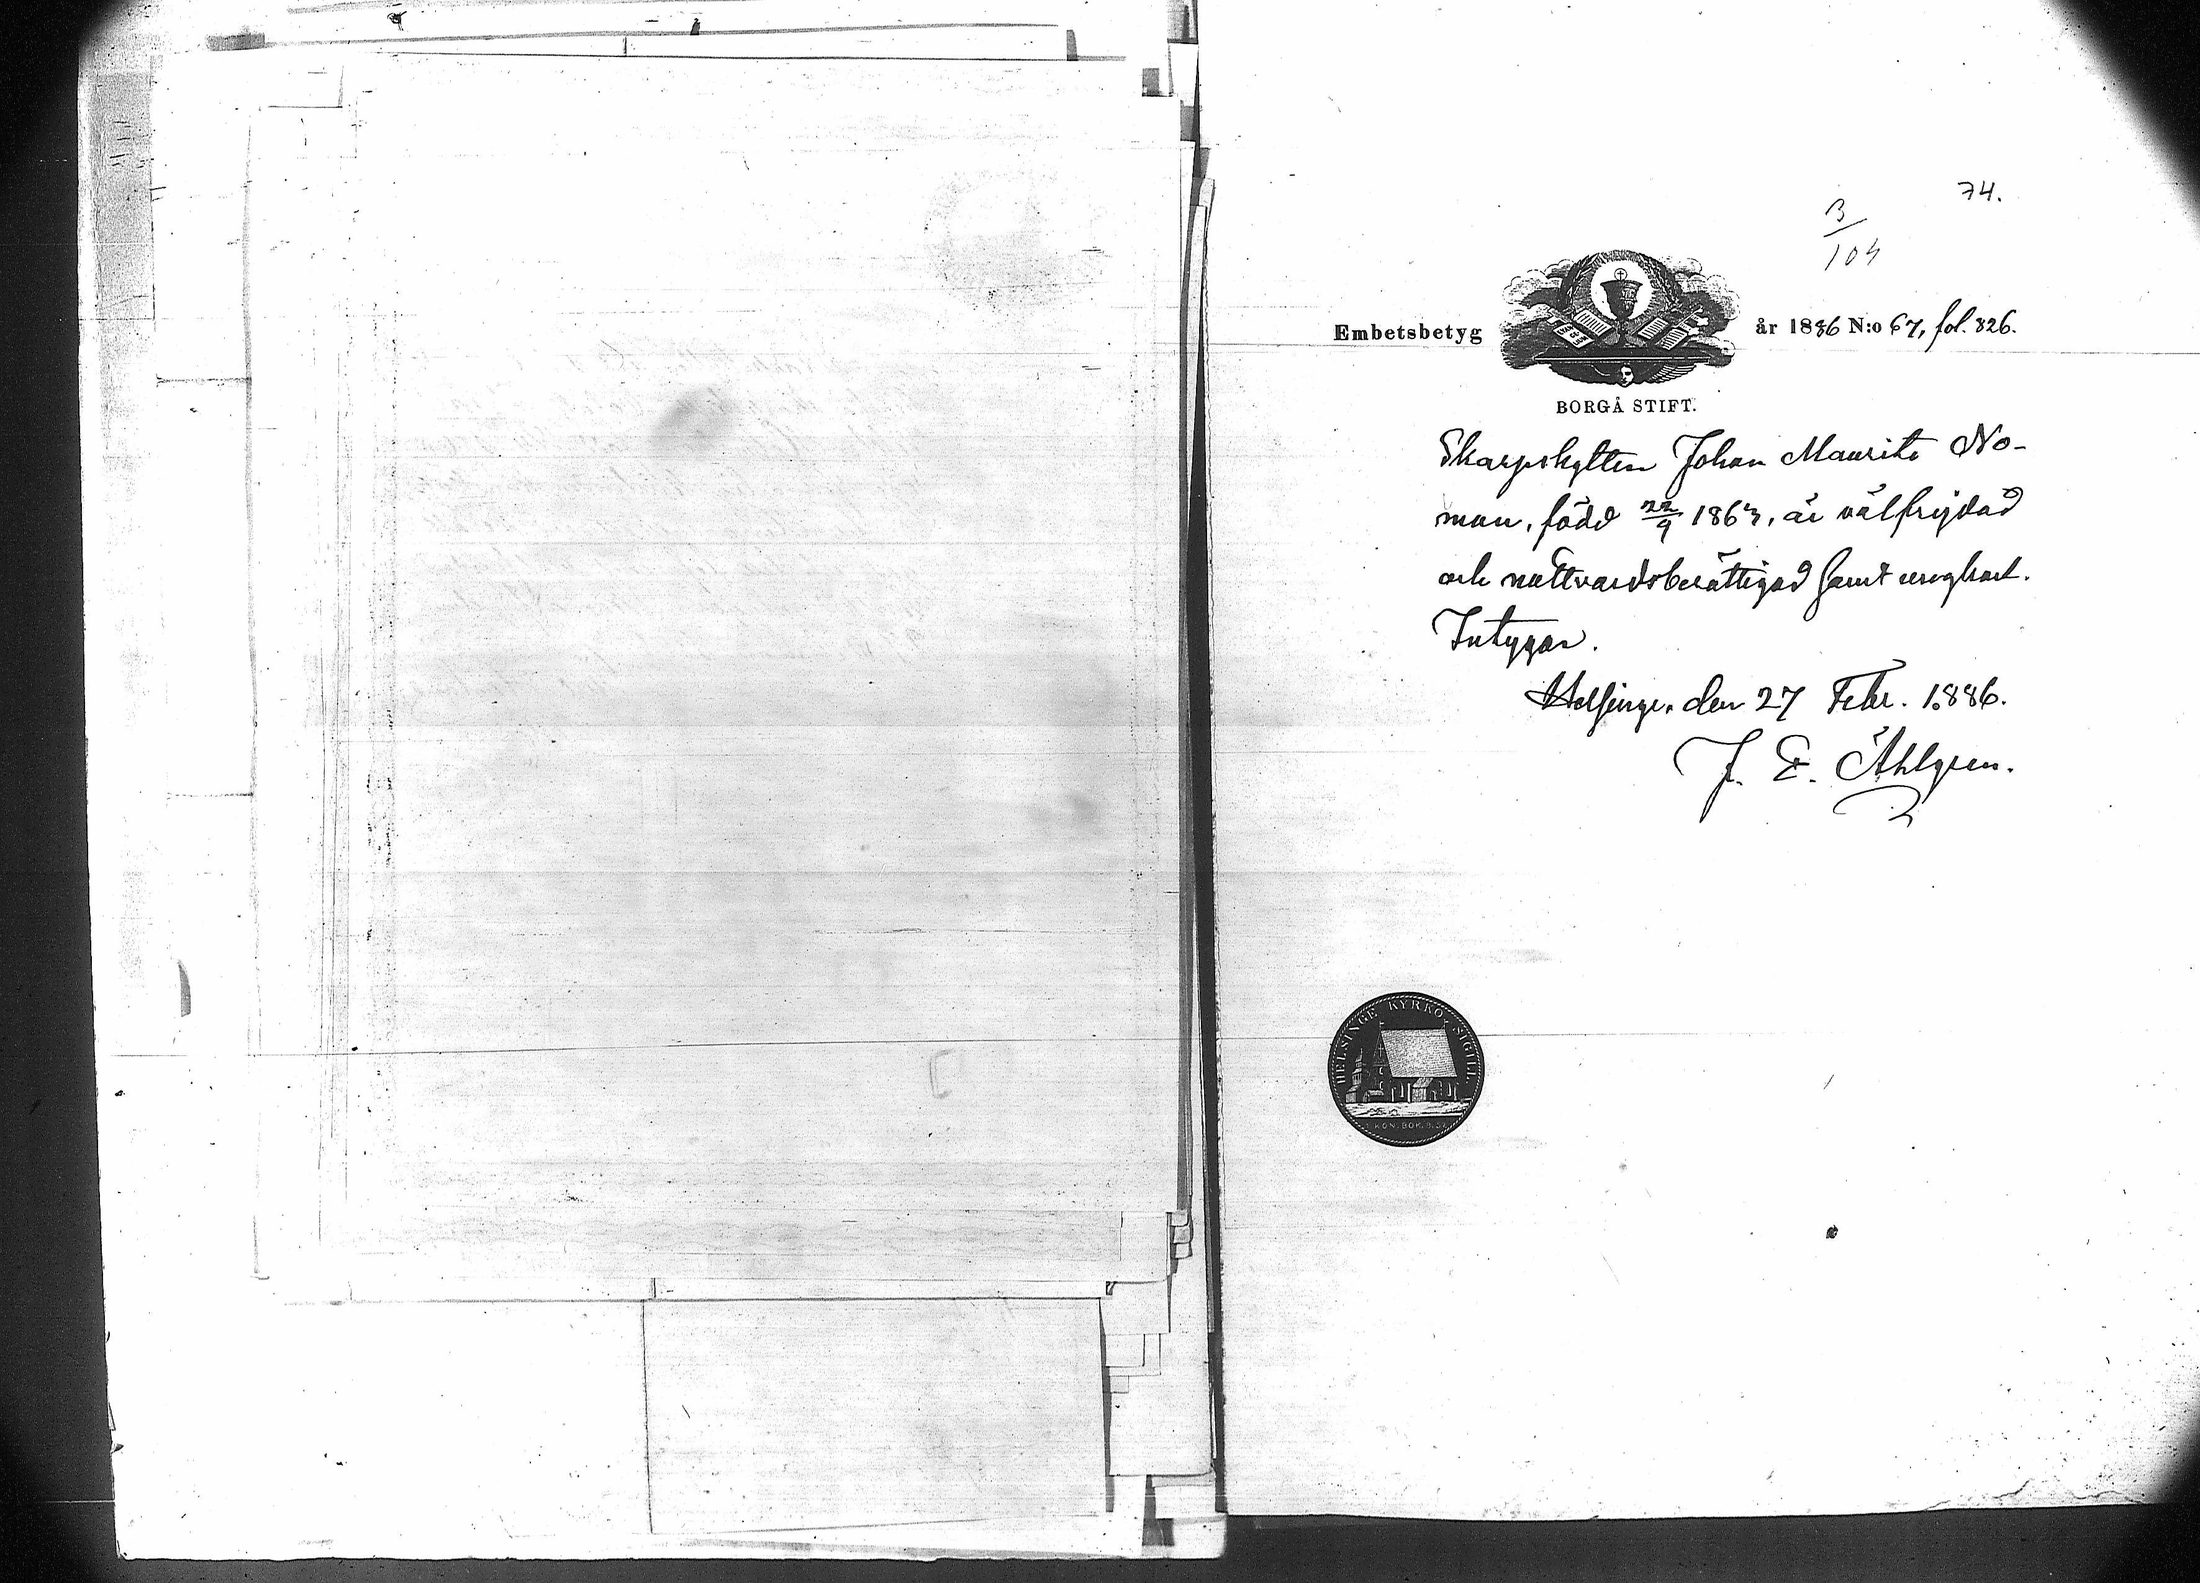 74.
3/104
Embetsbetyg år 1886 N:o 67, fol. 826.
BORGÅ STIFT.
Skarpskytten Johan Maurits No-
man, född 22/9 1863, är välfrejdad
och nattvardsberättigad samt
Intygar.
Helsinge, den 27 Febr. 1886.
J. E. Åhlgren.
HELSINGE KYRKO SIGILL.
KON. BOK. 8.